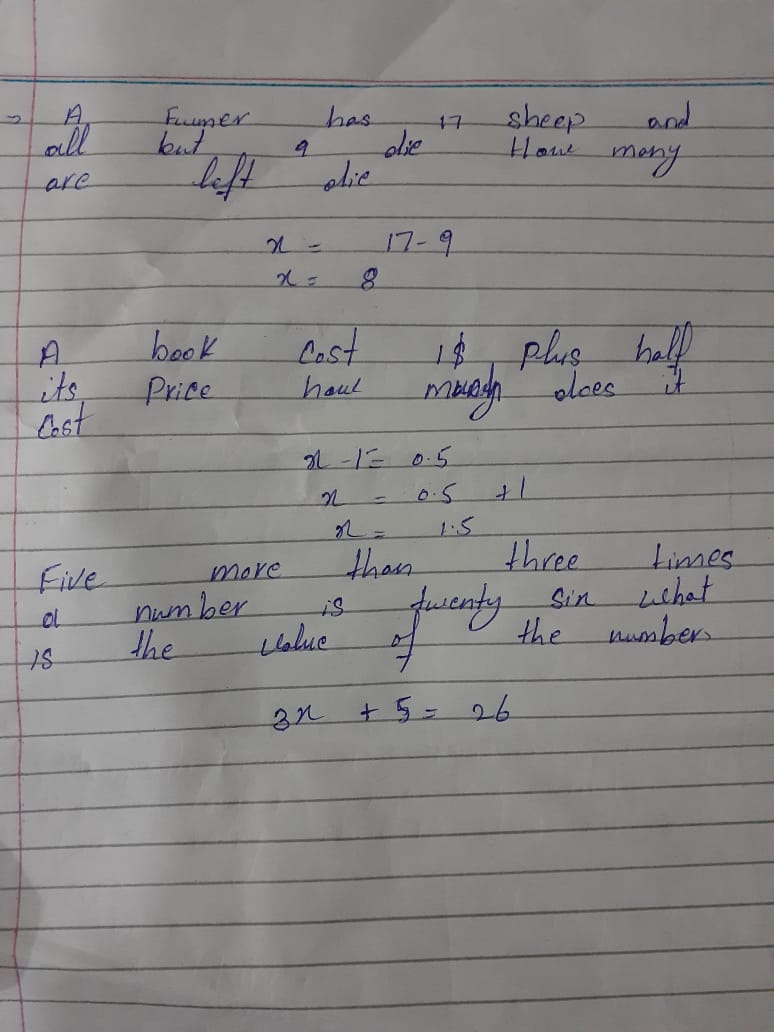 A Fuumer has 17 sheep and
all but 9 die How many
are left die
x = 17-9
x = 8
A book Cost 1$ plus half
its Price how does it
Cost
x -1= 0.5
x = 0.5 +1
x = 1.5
Five more than three times
a number is twenty six what
is the value of the number.
3x + 5 = 26